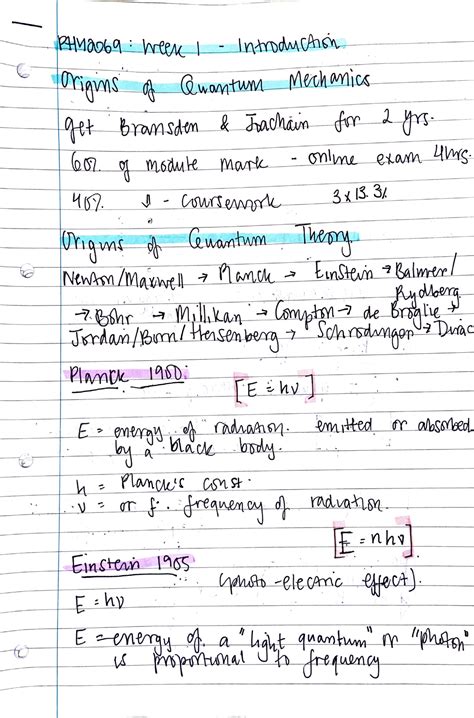 PHM2069 : Week 1 - Introduction
Origins of Quantum Mechanics
get Bransden & Joachain for 2 yrs.
60% of module mark - online exam 4hrs.
40% " - coursework 3 x 13.3%
Origins of Quantum Theory
Newton/Maxwell → Planck → Einstein → Balmer/
Rydberg
→ Bohr → Millikan → Compton → de Broglie →
Jordan/Born/Heisenberg → Schrodinger → Dirac
Planck 1900:
[E = hν]
E = energy of radiation emitted or absorbed
by a black body.
h = Planck's const.
ν = or f. frequency of radiation.
[E = nhν]
Einstein 1905
(photo-electric effect).
E = hν
E = energy of a "light quantum" or "photon"
is proportional to frequency